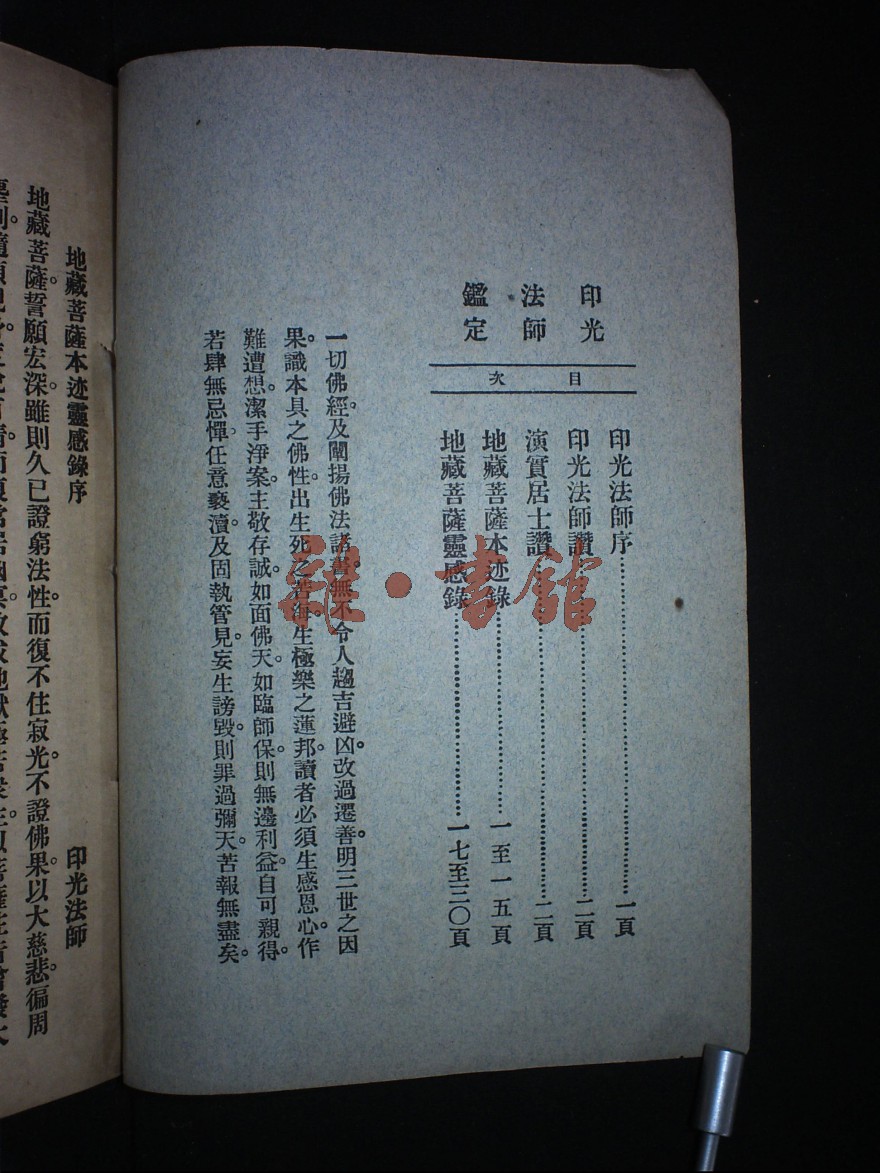 印光
法師
鑑定
目次
印光法師序 一頁
印光法師讚 二頁
演實居士讚 二頁
地藏菩薩本迹錄 一至一五頁
地藏菩薩靈感錄 一七至三〇頁
一切佛經。及闡揚佛法諸書。無不令人趨吉避凶。改過遷善。明三世之因
果。識本具之佛性。出生死之苦海。生極樂之蓮邦。讀者必須生感恩心。作
難遭想。潔手淨案。主敬存誠。如面佛天。如臨師保。則無邊利益。自可親得。
若肆無忌憚。任意褻瀆。及固執管見。妄生謗毀。則罪過彌天。苦報無盡矣。
地藏菩薩本迹靈感錄序 印光法師
地藏菩薩。誓願宏深。雖則久已證窮法性。而復不住寂光。不證佛果。以大慈悲。徧周
雜·書館